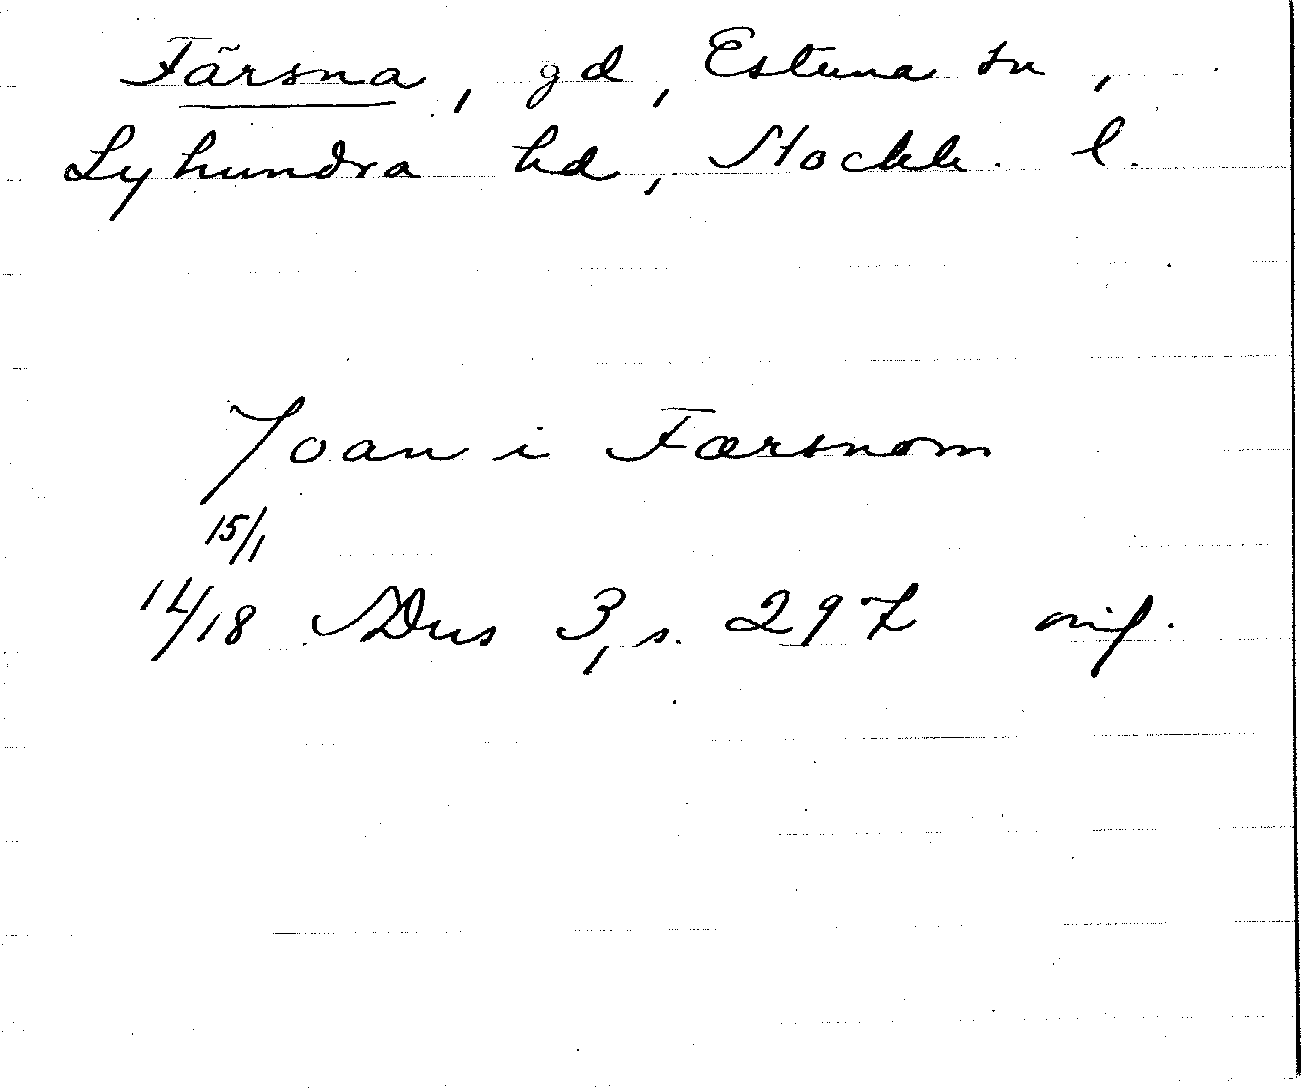 Färsna, gd, Estuna sn,
Lyhundra hd, Stockh. l.
Joan i Færsnom
15/1
14/18 SDns 3, s. 297 orig.